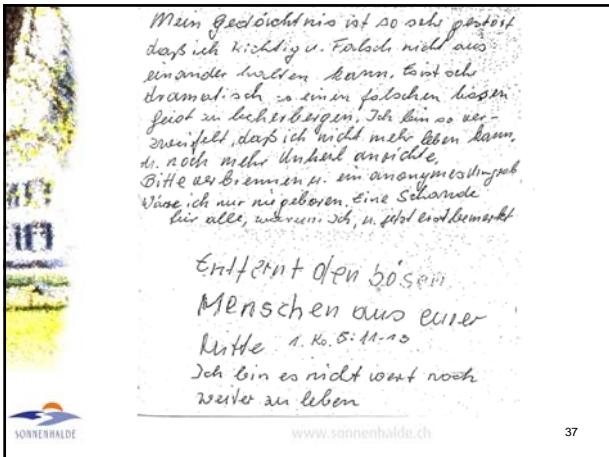 Mein Gedächtnis ist so sehr gestört
daß ich Richtig u. Falsch nicht aus
einander halten kann. Es ist sehr
dramatisch so einen falschen bösen
Geist zu beherbergen. Ich bin so ver-
zweifelt, daß ich nicht mehr leben kann.
u. noch mehr Unheil anrichte.
Bitte verbrennen u. ein anonymes
Wäre ich nur nie geboren. Eine Schande
für alle, warum ich, u. jetzt erst bemerkt
Entfernt den bösen
Menschen aus eurer
Mitte 1. Ko. 5:11-13
Ich bin es nicht wert noch
weiter zu leben
SONNENHALDE
www.sonnenhalde.ch
37